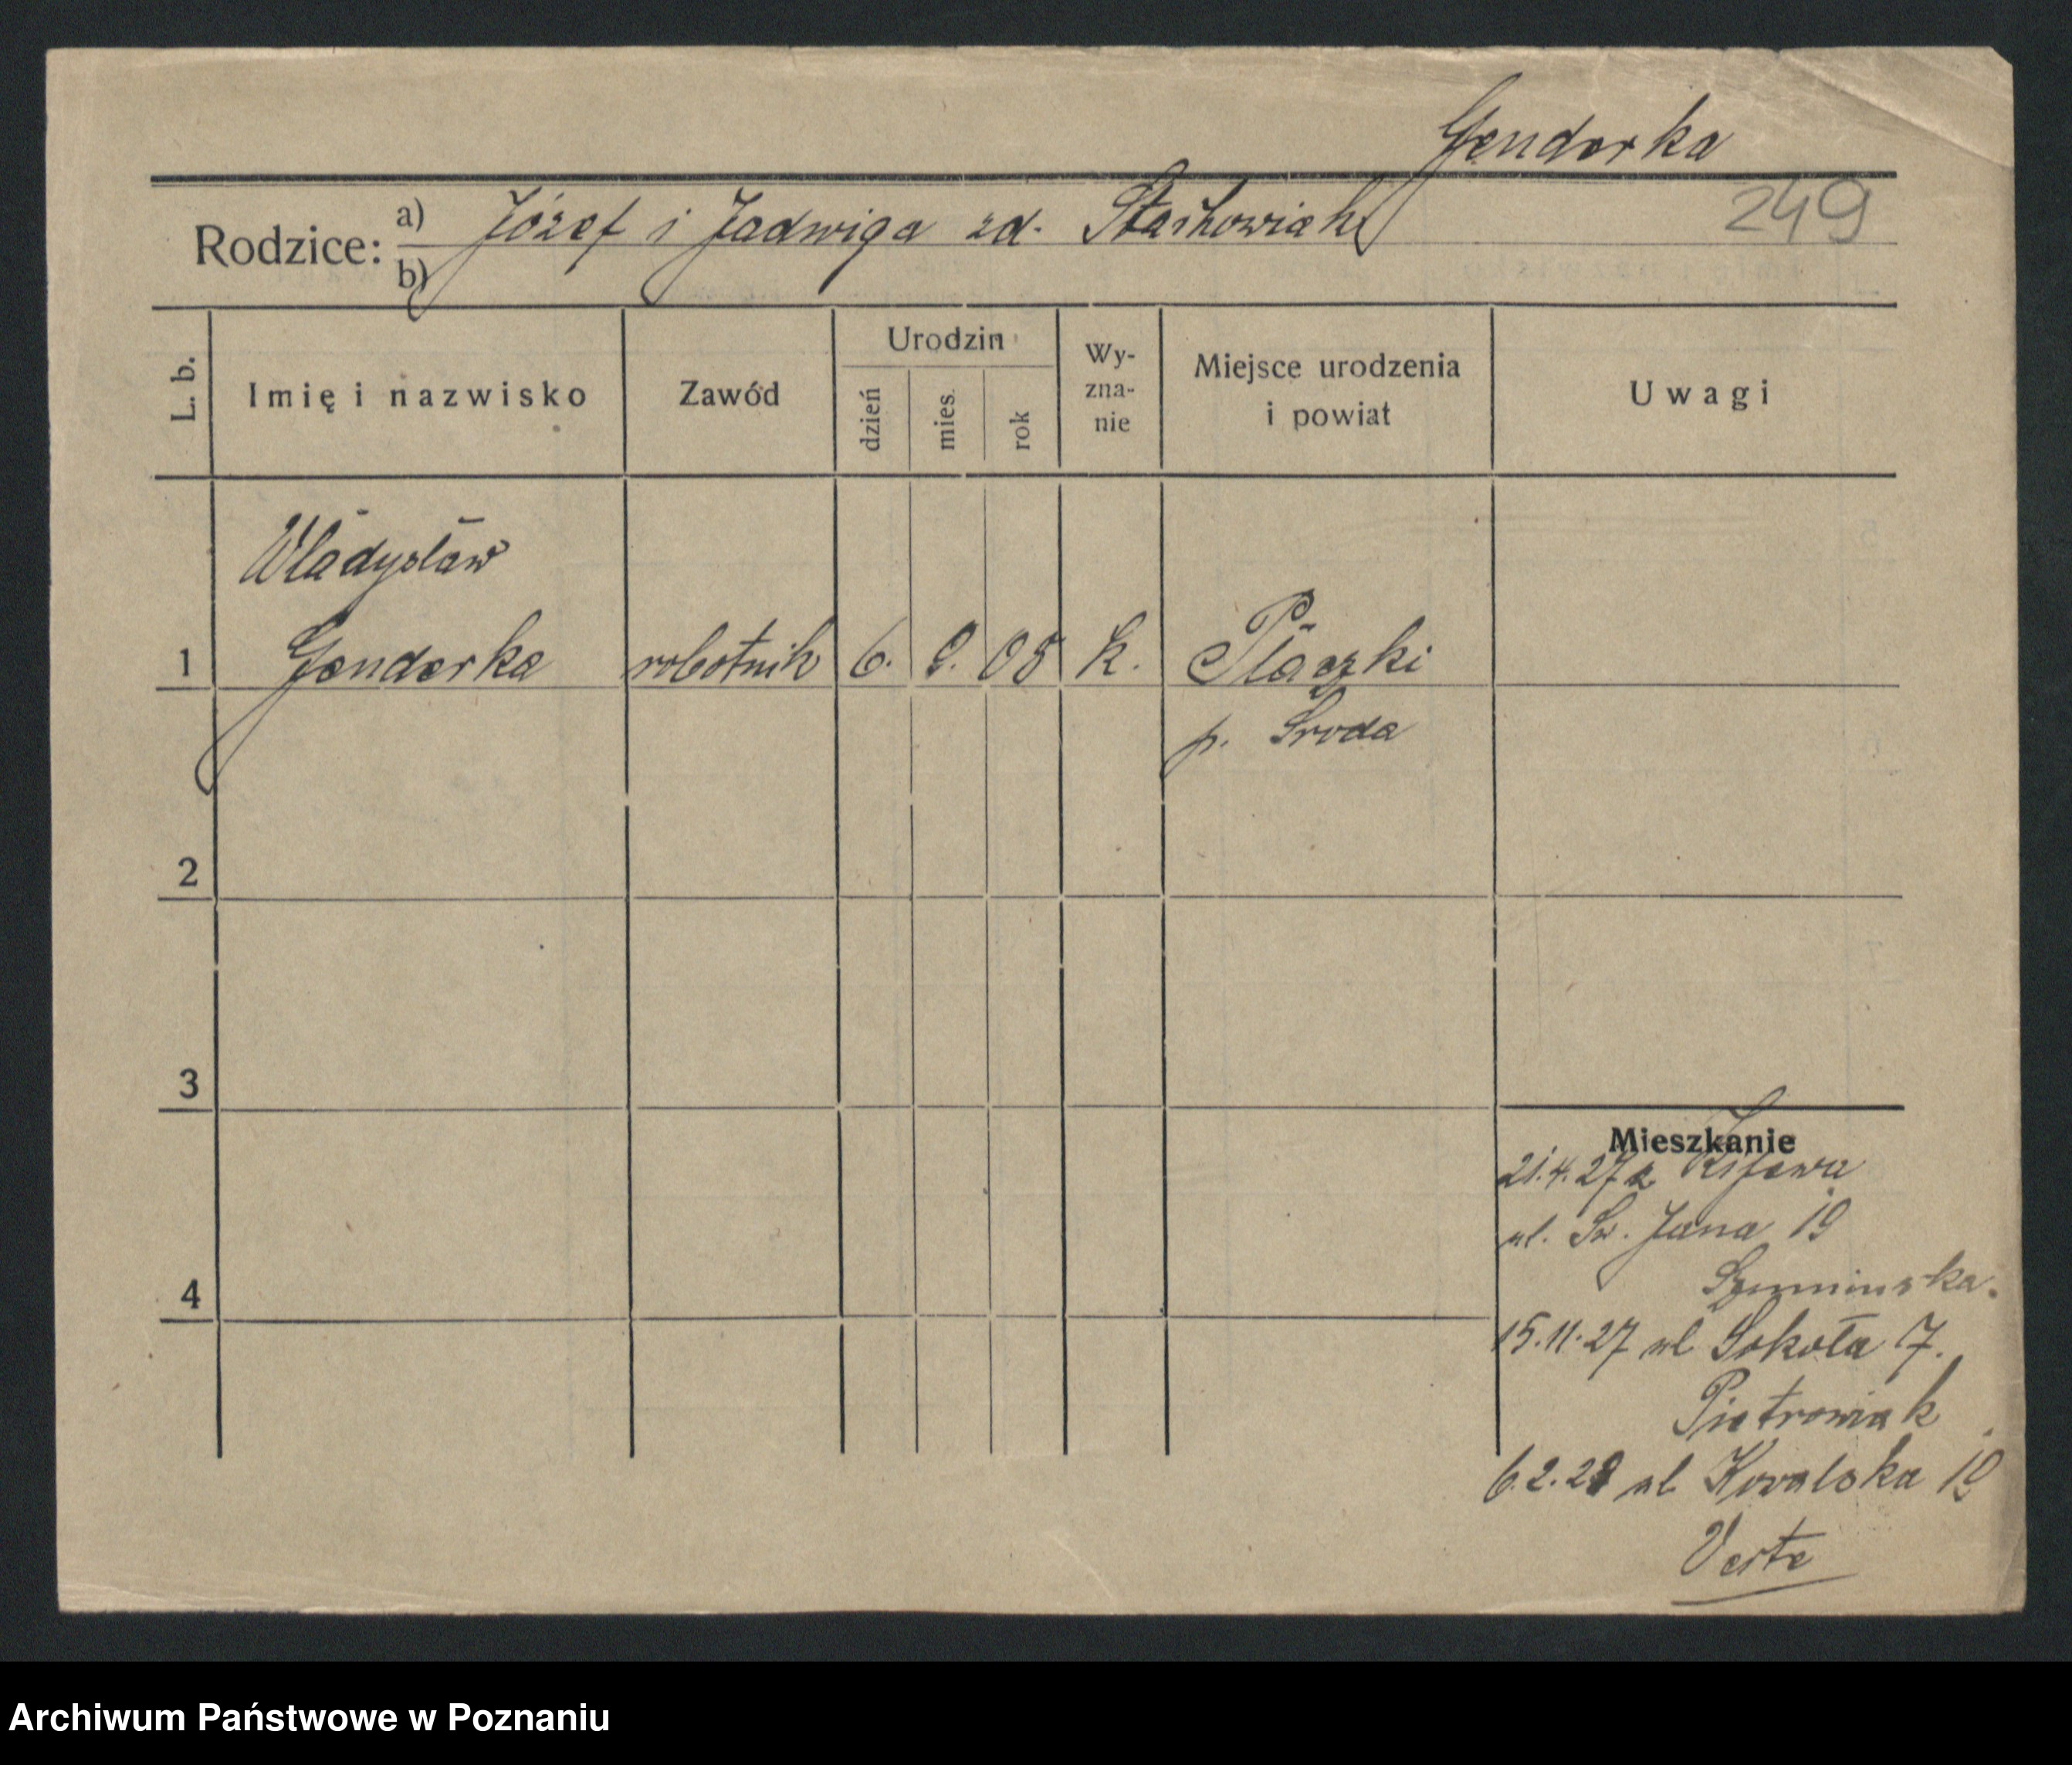 Genderka
249
Rodzice: a) Józef i Jadwiga zd. Stachowiak
b)
L. b. Imię i nazwisko Zawód Urodzin dzień mies. rok Wy-zna-nie Miejsce urodzenia i powiat Uwagi
Władysław
1 Genderka robotnik 6. 9. 05 k. Płaczki
p. Środa
2
3
4
Mieszkanie
21.4.27 z
ul. Św. Jana 19
15.11.27 ul Sokoła 7.
Piotrowiak
6.2.28 ul Kowalska 19
Verte
Archiwum Państwowe w Poznaniu